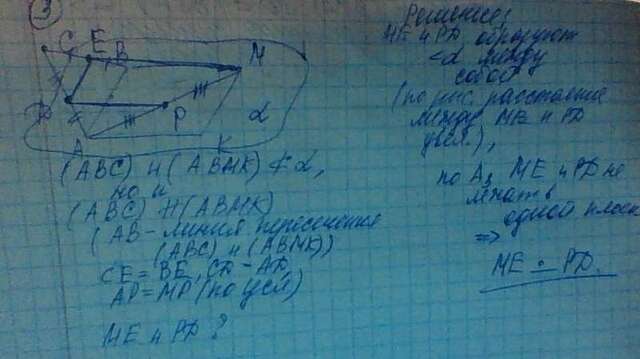 3
C E B M
D P α
A K
(ABC) и (ABMK) ⊄ α,
но и
(ABC) ∦ (ABMK)
(AB - линия пересечения
(ABC) и (ABMK))
CE = BE, CD = AD,
AP = MP (по усл)
ME и PD ?
Решение:
ME и PD образуют
<α между
собой
(по рис. расстояние
между ME и PD
увел.),
по A₃ ME и PD не
лежат в
одной плоск
=>
ME ∸ PD.